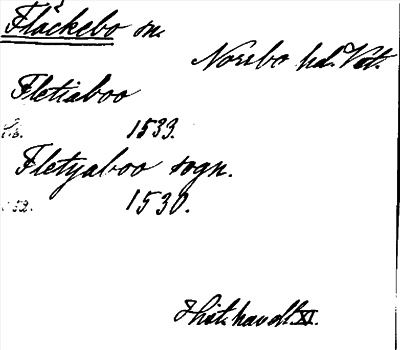 Fläckebo sn.
Norrbo hd. Vstm.
Fletiaboo
1533.
Fletyaboo sogn.
s 52. 1530.
Hist. handl. XI.